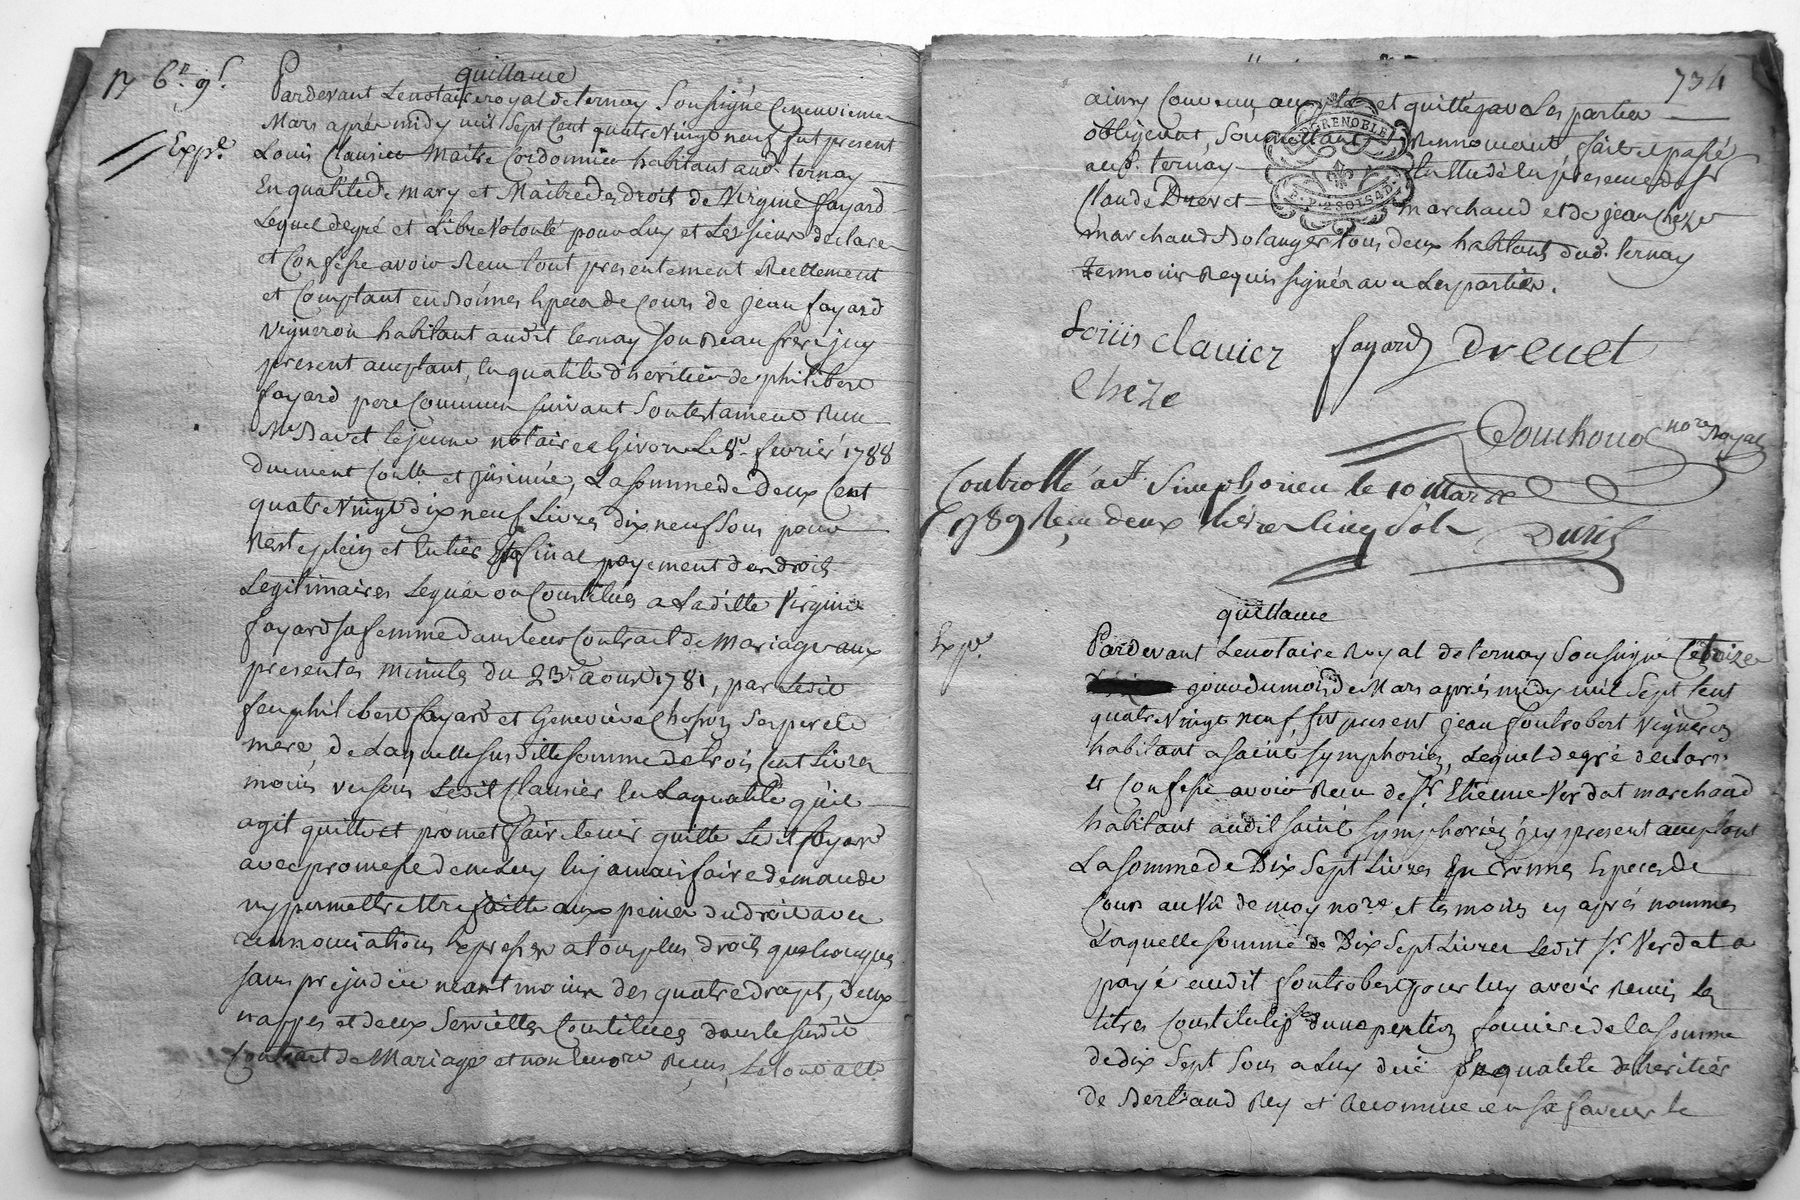 17 6n 9s
Expe.
quittance
Pardevant Lenotaire royal de ternay Soussigné Ceneuvieme
Mars aprés midy mil Sept Cent quatre Vingt neuf fut present
Louis Clausier Maitre Cordonnier habitant aud. ternay
En qualité de mary et Maitre des droit de Virginie fayard
Lequel degré et Libre Volonté pour Luy et Les siens declare
et Confesse avoir Reçu tout presentement Reellement
et Comptant en Bonnes Especes de Cours de jean fayard
vigneron habitant audit ternay son Beau frere jcy
present acceptant, En qualité d'heritier de philibert
fayard pere Commun suivant Son testament Reçu
Me Bavet lejeune notaire a Givors Le 8e fevrier 1788
duement Contlé et jnsinué, La somme de deux Cent
quatre Vingt dix neuf Livres dix neuf Sous pour
Reste plein et Entier final payement des droits
Legitimaires Legués ou Constitués a Ladille Virginie
fayard sa femme dans leur Contract de Mariage aux
presentes minutes du 23e aoust 1781, par Ledit
feu philibert fayard et Genevieve Chosson Ses pere et
mere, de Laquelle susditte somme de trois Cent Livres
moins un sous Ledit Clausier En Laqualité qu'il
agit quitte et promet faire tenir quitte Ledit fayard
avec promesse de ne Luy En jamais faire demande
ny permettre être faitte aux peines du droit avec
Rennonciations Expresses a tous plus droits quelconques
sans prejudice neant moins des quatre draps, deux
nappes et deux Serviettes Constituées dans le susdit
Contract de Mariage et non Encore Reçus, Le tout a été
734
ainsy Convenu, accepté et quitté par Les parties
obligeant, Soumettant, Rennonçant fait et passé
aud. ternay Etude En presence de sr
DE GRENOBLE
Claude Drevet marchand et de jean Cheze
marchand Bolanger tous deux habitants dud. ternay
temoins Requis signés avec Les parties.
Louis clauier fayard Drevet
Cheze
nore Royal
Controllé á St. Simphorien le 10 Mars
1789 Reçu deux livres Cinq Sols
quittance
Expe.
Pardevant Lenotaire Royal de ternay Soussigné Cetreize
jour du mois de Mars aprés midy mil Sept Cent
quatre Vingt neuf, fut present jean fontrobert Vigneron
habitant a saint symphorien, Lequel degré declare
et Confesse avoir Reçu de Sr Etienne Verdat marchand
habitant audit saint symphorien jcy present acceptant
La somme de Dix Sept Livres En Bonnes Especes de
Cour au Vû de moy nore et temoins cy aprés nommés
Laquelle somme de Dix Sept Livres Ledit Sr Verdat a
payé audit fontrobert pour luy avoir Remis Les
titres Constitutifs d'une pention fonciere de la somme
de dix Sept Sous a Luy due En qualité de heritier
de Bertrand Rey et Reconnue en sa faveur le